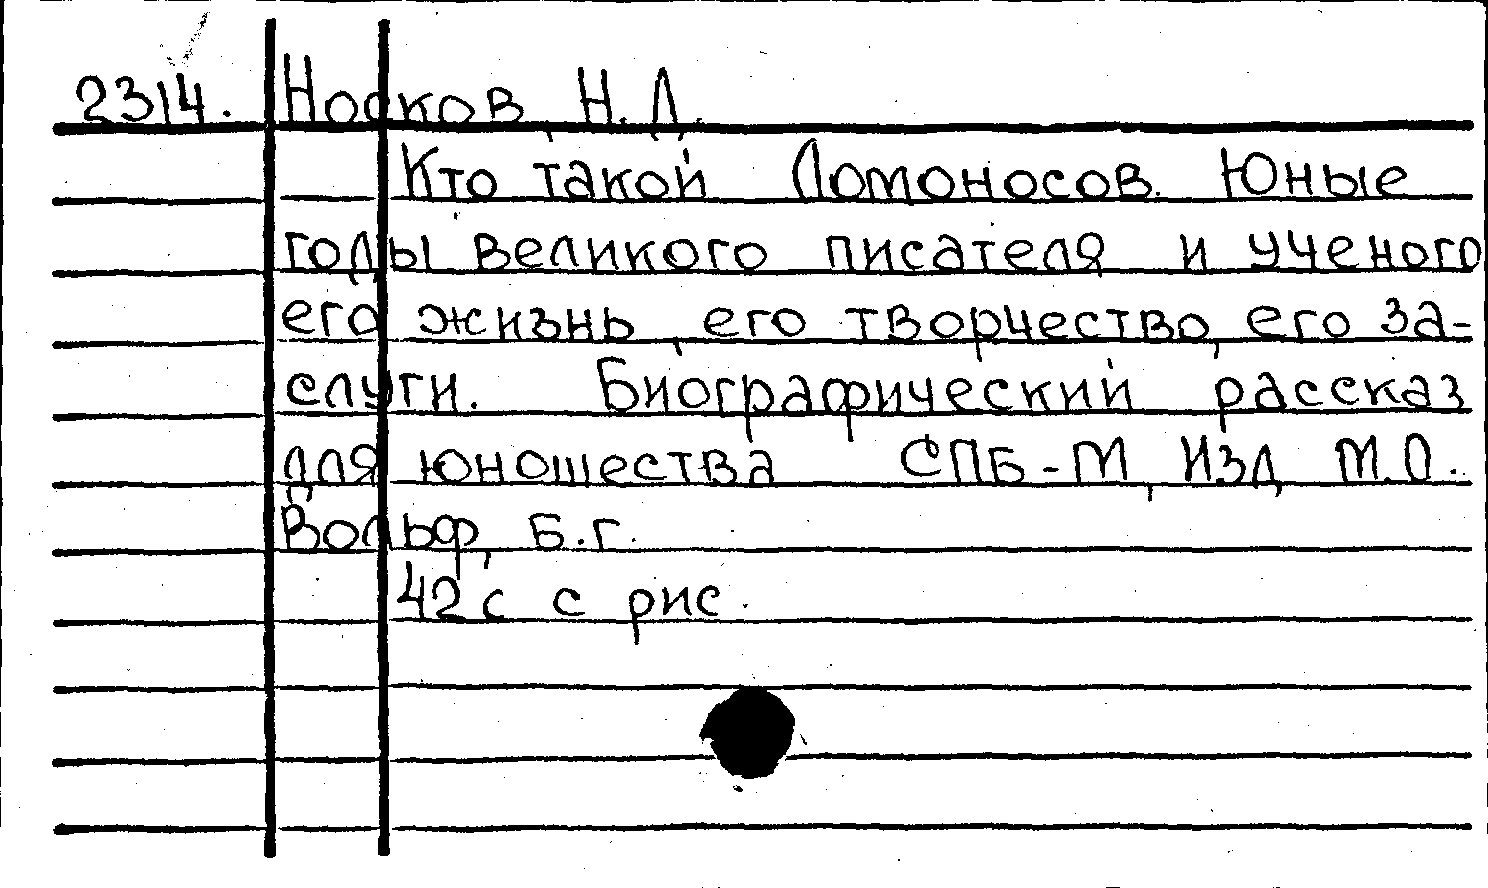 2314. Носков, Н. Д.
Кто такой Ломоносов. Юные
годы великого писателя и ученого
его жизнь, его творчество, его за-
слуги. Биографический рассказ
для юношества СПБ-М, Изд М.О.
Вольф, Б.г.
42 с с рис.